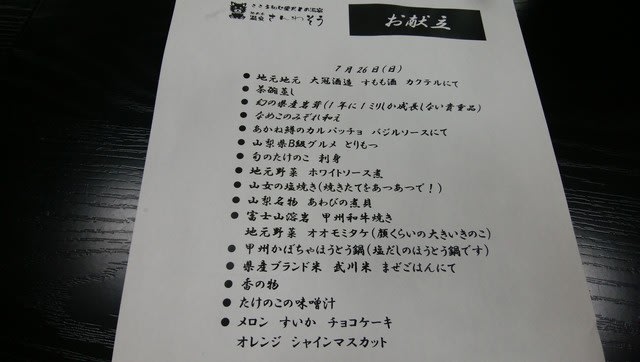 お献立
温泉 さんわそう
7月26日(日)
● 地元地元 大冠酒造 すもも酒 カクテルにて
● 茶碗蒸し
● 幻の県産岩茸(1年に1ミリしか成長しない貴重品)
● なめこのみぞれ和え
● あかね鱒のカルパッチョ バジルソースにて
● 山梨県B級グルメ とりもつ
● 旬のたけのこ 刺身
● 地元野菜 ホワイトソース煮
● 山女の塩焼き(焼きたてをあつあつで!)
● 山梨名物 あわびの煮貝
● 富士山溶岩 甲州和牛焼き
地元野菜 オオモミタケ(顔くらいの大きいきのこ)
● 甲州かぼちゃほうとう鍋(塩だしのほうとう鍋です)
● 県産ブランド米 武川米 まぜごはんにて
● 香の物
● たけのこの味噌汁
● メロン すいか チョコケーキ
オレンジ シャインマスカット